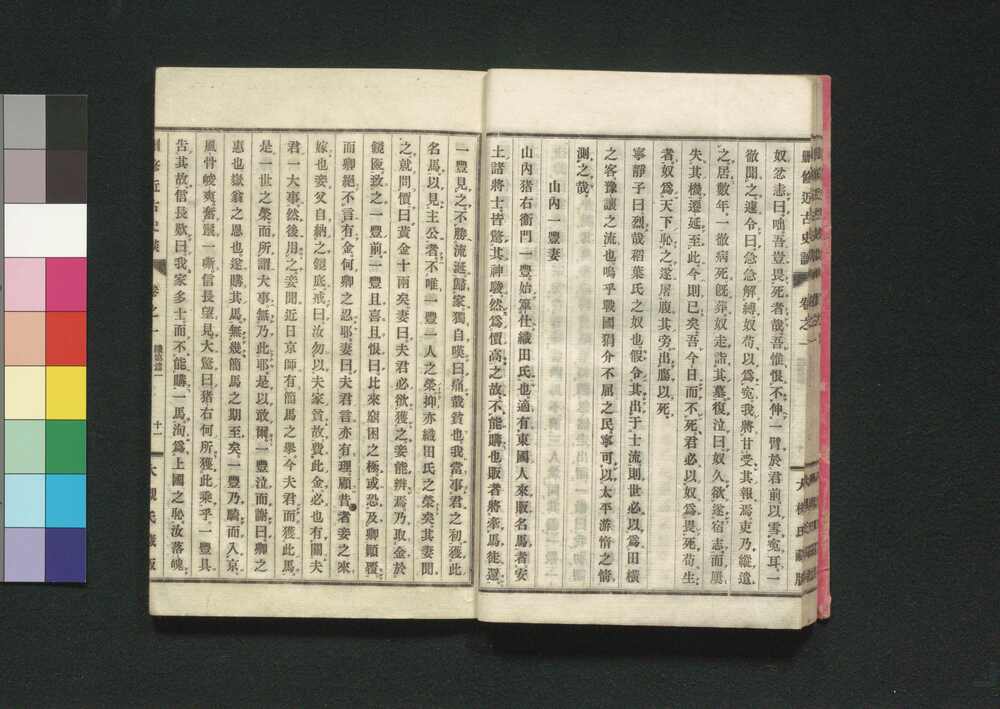 奴忿恚曰咄吾豈畏死者哉吾惟恨不伸一臂於君前以雪寃耳一
徹聞之遽令曰急急解縛奴苟以爲寃我將甘受其報焉吏乃縱遣
之居數年一徹病死既葬奴走詣其墓復泣曰奴久欲遂宿志而屢
失其機遷延至此今則已矣吾今日而不死君必以奴爲畏死苟生
者奴爲天下恥之遂屠腹其旁出膓以死
寧靜子曰烈哉稻葉氏之奴也假令其出于士流則世必以爲田横
之客豫讓之流也嗚乎戰國狷介不屈之民寧可以太平游惰之情
測之哉
山内一豐妻
山内猪右衛門一豐始筮仕織田氏也適有東國人來販名馬者安
土諸將士皆驚其神駿然爲價高之故不能購也販者將牽馬徒還
一豐見之不勝流涎歸家獨自嘆曰痛哉貧也我當事君之初獲此
名馬以見主公者不唯一豐一人之榮抑亦織田氏之榮矣其妻聞
之就問價曰黄金十兩矣妻曰夫君必欲獲之妾能辨焉乃取金於
鏡匳致之一豐前一豐且喜且恨曰比來窮困之極或恐及卿顚覆
而卿絕不言有金何卿之忍耶妻曰夫君言亦有理顧昔者妾之來
嫁也妾父自納之鏡底戒曰汝勿以夫家貧故費此金必也有關夫
君一大事然後用之妾聞近日京師有簡馬之擧今夫君而獲此馬
是一世之榮而所謂大事無乃此耶是以敢爾一豐泣而謝曰卿之
惠也嶽翁之恩也遂購其馬無幾簡馬之期至矣一豐乃騎而入京
風骨峻爽奮鬣一嘶信長望見大驚曰猪右何所獲此乘乎一豐具
告其故信長歎曰我家多士而不能購一馬洵爲上國之恥汝落魄
近古史談 卷之一 十一